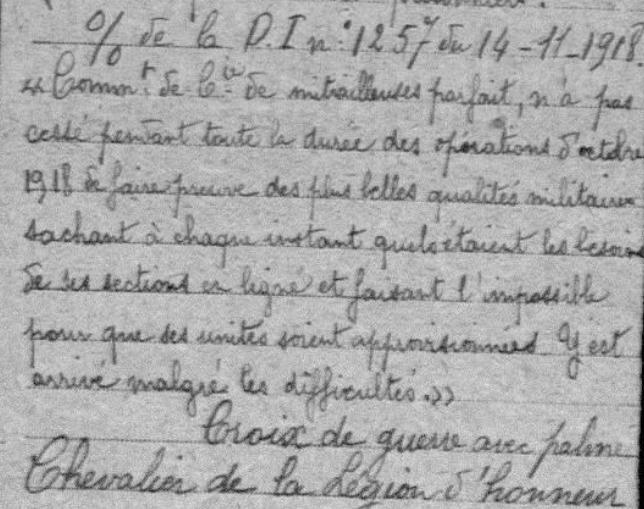 % de la D.I n° 1257 du 14-11-1918.
« Commt de Cie de mitrailleuses parfait, n'a pas
cessé pendant toute la durée des opérations d'octobre
1918 de faire preuve des plus belles qualités militaires
sachant à chaque instant quels étaient les besoins
de ses sections en ligne et faisant l'impossible
pour que ses unités soient approvisionnées Y est
arrivé malgré les difficultés.»
Croix de guerre avec palme
Chevalier de la Légion d'honneur